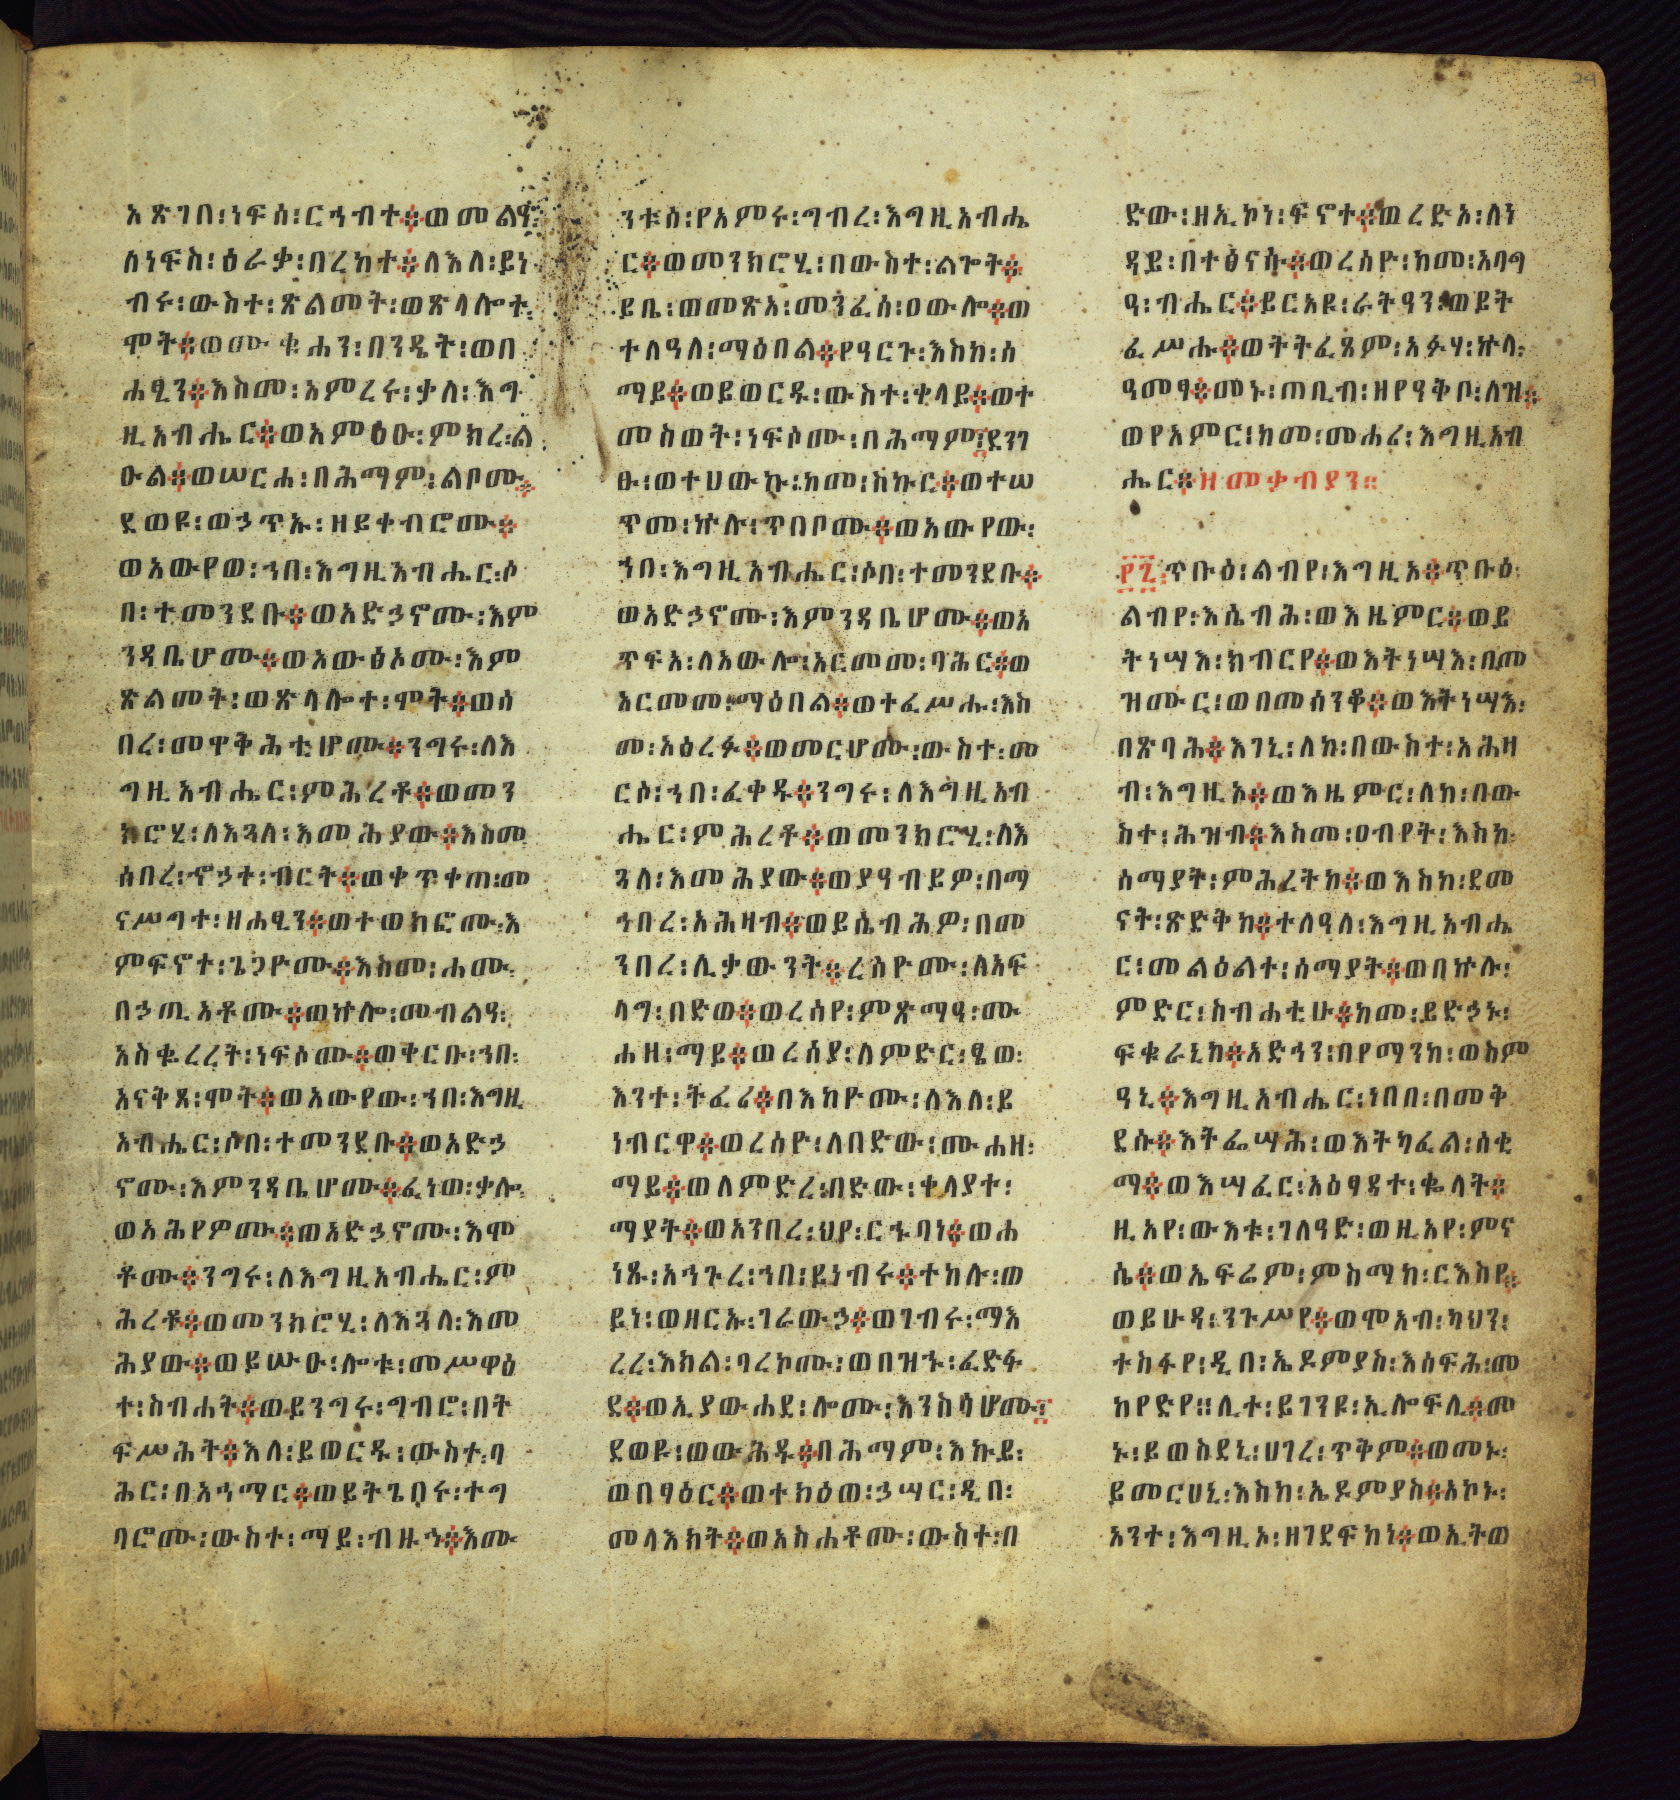 አጽገበ፡ነፍሰ፡ርኅብተ፨ወመልዓ፡
ለነፍስ፡ዕራቃ፡በረከተ፨ለእለ፡ይነ
ብሩ፡ውስተ፡ጽልመት፡ወጽላሎተ፡
ሞት፨ወሙቁሐን፡በንዴት፡ወበ
ሐፂን፨እስመ፡አምረሩ፡ቃለ፡እግ
ዚአብሔር፨ወአምዕዑ፡ምክረ፡ል
ዑል፨ወሠርሐ፡በሕማም፡ልቦሙ፨
ደወዩ፡ወኃጥኡ፡ዘይቀብሮሙ፨
ወአውየወ፡ኀበ፡እግዚአብሔር፡ሶ
በ፡ተመንደቡ፨ወአድኃኖሙ፡እም
ንዳቤሆሙ፨ወአውፅኦሙ፡እም
ጽልመት፡ወጽላሎተ፡ሞት፨ወሰ
በረ፡መዋቅሕቲሆሙ፨ንግሩ፡ለእ
ግዚአብሔር፡ምሕረቶ፨ወመን
ክሮሂ፡ለእጓለ፡እመሕያው፨እስመ
ሰበረ፡ኆኃተ፡ብርት፨ወቀጥቀጠ፡መ
ናሥግተ፡ዘሐፂን፨ወተወክፎሙ፡እ
ምፍኖተ፡ጌጋዮሙ፨እስመ፡ሐሙ፡
በኃጢአቶሙ፨ወኵሎ፡መብልዓ፡
አስቈረረት፡ነፍሶሙ፨ወቀርቡ፡ኀበ፡
አናቅጸ፡ሞት፨ወአውየው፡ኀበ፡እግዚ
አብሔር፡ሶበ፡ተመንደቡ፨ወአድኃ
ኖሙ፡እምንዳቤሆሙ፨ፈነወ፡ቃሎ፡
ወአሕየዎሙ፨ወአድኃኖሙ፡እሞ
ቶሙ፨ንግሩ፡ለእግዚአብሔር፡ም
ሕረቶ፨ወመንክሮሂ፡ለእጓለ፡እመ
ሕያው፨ወይሡዑ፡ሎቱ፡መሥዋዕ
ተ፡ስብሐት፨ወይንግሩ፡ግብሮ፡በት
ፍሥሕት፨እለ፡ይወርዱ፡ውስተ፡ባ
ሕር፡በአኀማር፨ወይትጌበሩ፡ተግ
ባሮሙ፡ውስተ፡ማይ፡ብዙኅ፨እሙ
ንቱሰ፡የአምሩ፡ግብረ፡እግዚአብሔ
ር፨ወመንክሮሂ፡በውስተ፡ልጐት፨
ይቤ፡ወመጽአ፡መንፈሰ፡ዐውሎ፨ወ
ተለዓለ፡ማዕበል፨የዓርጉ፡እስከ፡ሰ
ማይ፨ወይወርዱ፡ውስተ፡ቀላይ፨ወተ
መስወት፡ነፍሶሙ፡በሕማም፡ደንገ
ፁ፡ወተሀውኩ፡ከመ፡ስኩር፨ወተሠ
ጥመ፡ኵሉ፡ጥበቦሙ፨ወአውየው፡
ኀበ፡እግዚአብሔር፡ሶበ፡ተመንደቡ፨
ወአድኃኖሙ፡እምንዳቤሆሙ፨ወአ
ጥፍአ፡ለአውሎ፡አርመመ፡ባሕር፨ወ
አርመመ፡ማዕበል፨ወተፈሥሑ፡እስ
መ፡አዕረፉ፨ወመርሆሙ፡ውስተ፡መ
ርሶ፡ኀበ፡ፈቀዱ፨ንግሩ፡ለእግዚአብ
ሔር፡ምሕረቶ፨ወመንክሮሂ፡ለእ
ጓለ፡እመሕያው፨ወያዓብይዎ፡በማ
ኅበረ፡አሕዛብ፨ወይሴብሕዎ፡በመ
ንበረ፡ሊቃውንት፨ረሰዮሙ፡ለአፍ
ላግ፡በድወ፨ወረሰየ፡ምጽማዓ፡ሙ
ሐዘ፡ማይ፨ወረሰያ፡ለምድር፡ፄወ፡
እንተ፡ትፈሪ፨በእከዮሙ፡ለእለ፡ይ
ነብርዋ፨ወረሰዮ፡ለበድው፡ሙሐዘ፡
ማይ፨ወለምድረ፡በድው፡ቀላያተ፡
ማያት፨ወአንበረ፡ህየ፡ርኁባነ፨ወሐ
ነጹ፡አኅጉረ፡ኀበ፡ይነብሩ፨ተከሉ፡ወ
ይነ፡ወዘርኡ፡ገራውኃ፨ወገብሩ፡ማእ
ረረ፡እክል፡ባረኮሙ፡ወበዝኁ፡ፈድፋ
ደ፨ወኢያውሐደ፡ሎሙ፡እንስሳሆሙ፡
ደወዩ፡ወውሕዱ፨በሕማም፡እኩይ፡
ወበፃዕር፨ወተክዕወ፡ኃሣር፡ዲበ፡
መላእክት፨ወአስሐቶሙ፡ውስተ፡በ
ድው፡ዘኢኮነ፡ፍኖተ፨ወረድአ፡ለነ
ዳይ፡በተፅናሱ፨ወረሰዮ፡ከመ፡አባግ
ዓ፡ብሔር፨ይርአዩ፡ራትዓን፡ወይት
ፈሥሑ፨ወትትፈጸም፡አፉሃ፡ኵላ፡
ዓመፃ፨መኑ፡ጠቢብ፡ዘየዓቅቦ፡ለዝ፨
ወየአምር፡ከመ፡መሐሪ፡እግዚአብ
ሔር፨ዘመቃብያን።
፻፯፡ጥቡዕ፡ልብየ፡እግዚአ፨ጥቡዕ፡
ልብየ፡እሴብሕ፡ወእዜምር፨ወይ
ትነሣእ፡ክብርየ፨ወእትነሣእ፡በመ
ዝሙር፡ወበመሰንቆ፨ወእትነሣእ፡
በጽባሕ፨እገኒ፡ለከ፡በውስተ፡አሕዛ
ብ፡እግዚኦ፨ወእዜምር፡ለከ፡በው
ስተ፡ሕዝብ፨እስመ፡ዐብየት፡እስከ፡
ሰማያት፡ምሕረትከ፨ወእስከ፡ደመ
ናት፡ጽድቅከ፨ተለዓለ፡እግዚአብሔ
ር፡መልዕልተ፡ሰማያት፨ወበኵሉ፡
ምድር፡ስብሐቲሁ፨ከመ፡ይድኃኑ፡
ፍቁራኒከ፨አድኅን፡በየማንከ፡ወስም
ዓኒ፨እግዚአብሔር፡ነበበ፡በመቅ
ደሱ፨እትፌሣሕ፡ወእትካፈል፡ሰቂ
ማ፨ወእሣፈር፡አዕፃዳተ፡ቈላት፨
ዚአየ፡ውእቱ፡ገለዓድ፡ወዚአየ፡ምና
ሴ፨ወኤፍሬም፡ምስማከ፡ርእስየ፨
ወይሁዳ፡ንጉሥየ፨ወሞአብ፡ካህን፡
ተስፋየ፡ዲበ፡ኤዶምያስ፡እሰፍሕ፡መ
ከየድየ።ሊተ፡ይገንዩ፡ኢሎፍሊ፨መ
ኑ፡ይወስደኒ፡ሀገረ፡ጥቅም፨ወመኑ፡
ይመርሀኒ፡እስከ፡ኤዶምያስ፨አኮኑ፡
አንተ፡እግዚኦ፡ዘገደፍከነ፨ወኢትወ